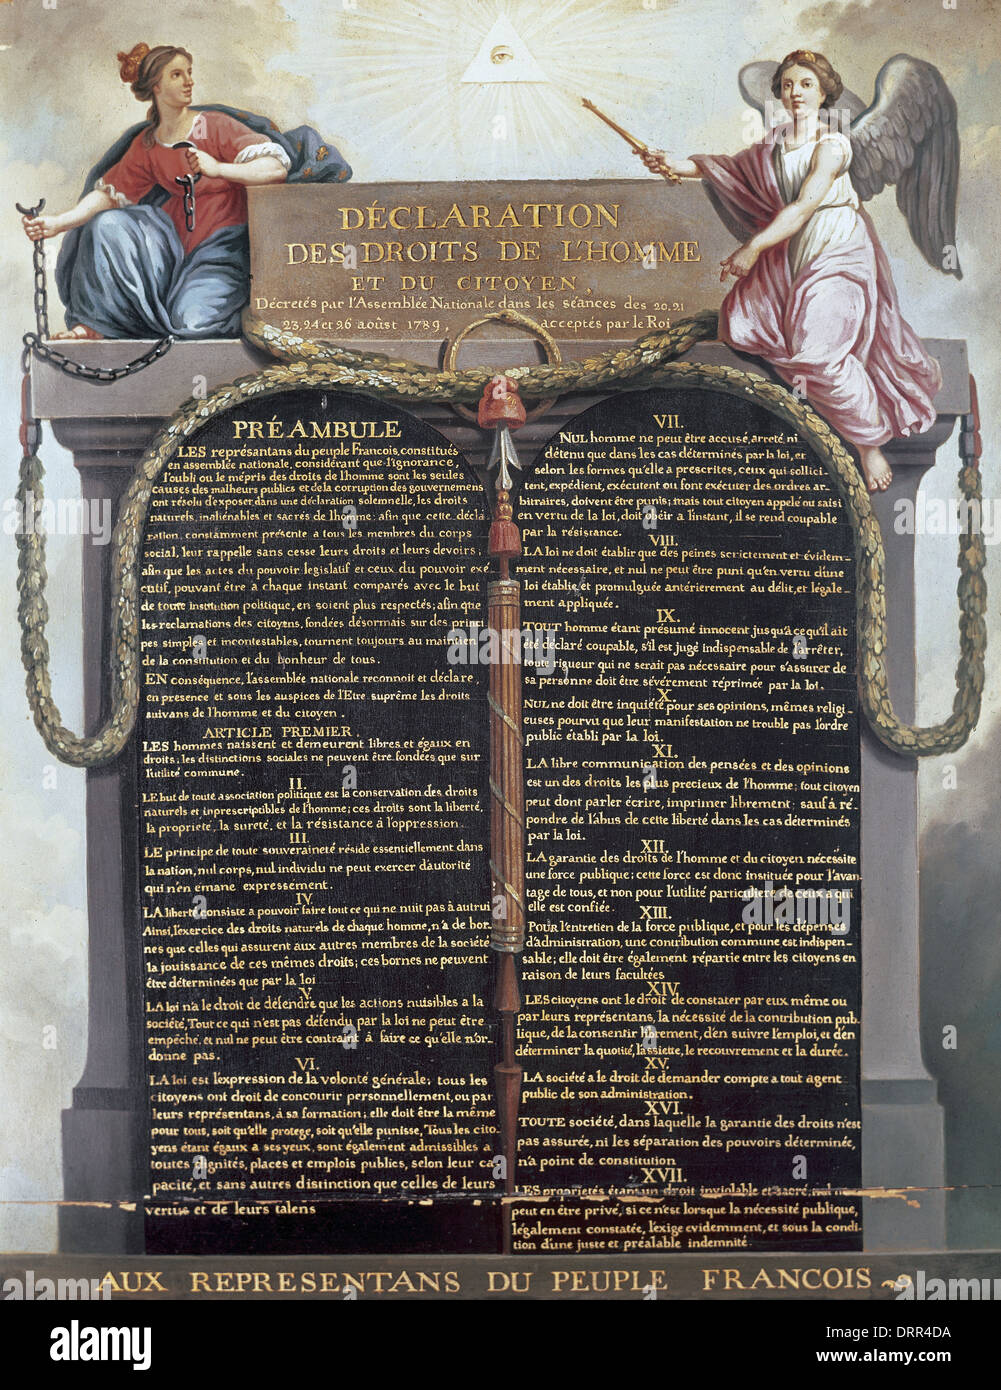 DÉCLARATION
DES DROITS DE L'HOMME
ET DU CITOYEN,
Décretés par l'Assemblée Nationale dans les séances des 20.21
23.24 et 26 aoûst 1789, acceptés par le Roi
PRÉAMBULE
LES représentans du peuple Francois, constitués
en assemblée nationale, considérant que l'ignorance,
l'oubli ou le mépris des droits de l'homme sont les seules
causes des malheurs publics et de la corruption des gouvernemens
ont résolu d'exposer, dans une déclaration solemnelle, les droits
naturels, inaliénables et sacrés de l'homme; afin que cette décla
ration, constamment présente a tous les membres du corps
social, leur rappelle sans cesse leurs droits et leurs devoirs;
afin que les actes du pouvoir législatif et ceux du pouvoir exé
cutif, pouvant être a chaque instant comparés avec le but
de toute institution politique, en soient plus respectés; afin que
les reclamations des citoyens, fondées désormais sur des princi
pes simples et incontestables, tournent toujours au maintien
de la constitution et du bonheur de tous.
EN conséquence, l'assemblée nationale reconnoit et déclare,
en presence et sous les auspices de l'Etre suprême les droits
suivans de l'homme et du citoyen.
ARTICLE PREMIER.
LES hommes naissent et demeurent libres et égaux en
droits; les distinctions sociales ne peuvent être fondées que sur
l'utilité commune.
II.
LE but de toute association politique est la conservation des droits
naturels et inprescriptibles de l'homme; ces droits sont la liberté,
la propriété, la sureté, et la résistance à l'oppression.
III.
LE principe de toute souveraineté réside essentiellement dans
la nation, nul corps, nul individu ne peut exercer d'autorité
qui n'en émane expressement.
IV.
LA liberté consiste a pouvoir faire tout ce qui ne nuit pas à autrui
Ainsi, l'exercice des droits naturels de chaque homme, n'a de bor-
nes que celles qui assurent aux autres membres de la société
la jouissance de ces mêmes droits; ces bornes ne peuvent
être déterminées que par la loi
V.
LA loi n'a le droit de défendre que les actions nuisibles a la
société, Tout ce qui n'est pas défendu par la loi ne peut être
empêché, et nul ne peut être contraint à faire ce qu'elle n'or-
donne pas.
VI.
LA loi est l'expression de la volonté générale; tous les
citoyens ont droit de concourir personnellement, ou par
leurs représentans, à sa formation; elle doit être la même
pour tous, soit qu'elle protege, soit qu'elle punisse, Tous les cito-
yens étant égaux a ses yeux, sont également admissibles a
toutes dignités, places et emplois publics, selon leur ca
pacité, et sans autres distinction que celles de leurs
vertus et de leurs talens
VII.
NUL homme ne peut être accusé, arreté ni
détenu que dans les cas déterminés par la loi, et
selon les formes qu'elle a prescrites, ceux qui sollici-
tent, expédient, exécutent ou font exécuter des ordres ar-
bitraires, doivent être punis; mais tout citoyen appelé ou saisi
en vertu de la loi, doit obéir a l'instant, il se rend coupable
par la résistance.
VIII.
LA loi ne doit établir que des peines strictement et évidem-
ment nécessaire, et nul ne peut être puni qu'en vertu d'une
loi établie, et promulguée antérierement au délit, et légale-
ment appliquée.
IX.
TOUT homme étant présumé innocent jusqu'a ce qu'il ait
été déclaré coupable, s'il est jugé indispensable de l'arrêter,
toute rigueur qui ne serait pas nécessaire pour s'assurer de
sa personne doit être sévèrement réprimée par la loi.
X.
NUL ne doit être inquiété pour ses opinions, mêmes religi-
euses pourvu que leur manifestation ne trouble pas l'ordre
public établi par la loi.
XI.
LA libre communication des pensées et des opinions
est un des droits les plus precieux de l'homme; tout citoyen
peut dont parler écrire, imprimer librement; sauf à ré-
pondre de l'abus de cette liberté dans les cas déterminés
par la loi.
XII.
LA garantie des droits de l'homme et du citoyen nécessite
une force publique; cette force est donc instituée pour l'avan-
tage de tous, et non pour l'utilité particuliere de ceux a qui
elle est confiée.
XIII.
POUR l'entretien de la force publique, et pour les dépenses
d'administration, une contribution commune est indispen-
sable; elle doit être également répartie entre les citoyens en
raison de leurs facultées
XIV.
LES citoyens ont le droit de constater par eux même ou
par leurs représentans, la nécessité de la contribution pub
lique, de la consentir librement, d'en suivre l'emploi, et d'en
déterminer la quotité, l'assiette, le recouvrement et la durée.
XV.
LA société a le droit de demander compte a tout agent
public de son administration.
XVI.
TOUTE société, dans laquelle la garantie des droits n'est
pas assurée, ni les séparation des pouvoirs déterminée,
n'a point de constitution
XVII.
LES proprietés étant un droit inviolable et sacré, nul ne
peut en être privé, si ce n'est lorsque la nécessité publique,
légalement constatée, l'exige evidemment, et sous la condi
tion d'une juste et préalable indemnité.
AUX REPRESENTANS DU PEUPLE FRANCOIS
alamy
alamy stock photo
DRR4DA
www.alamy.com